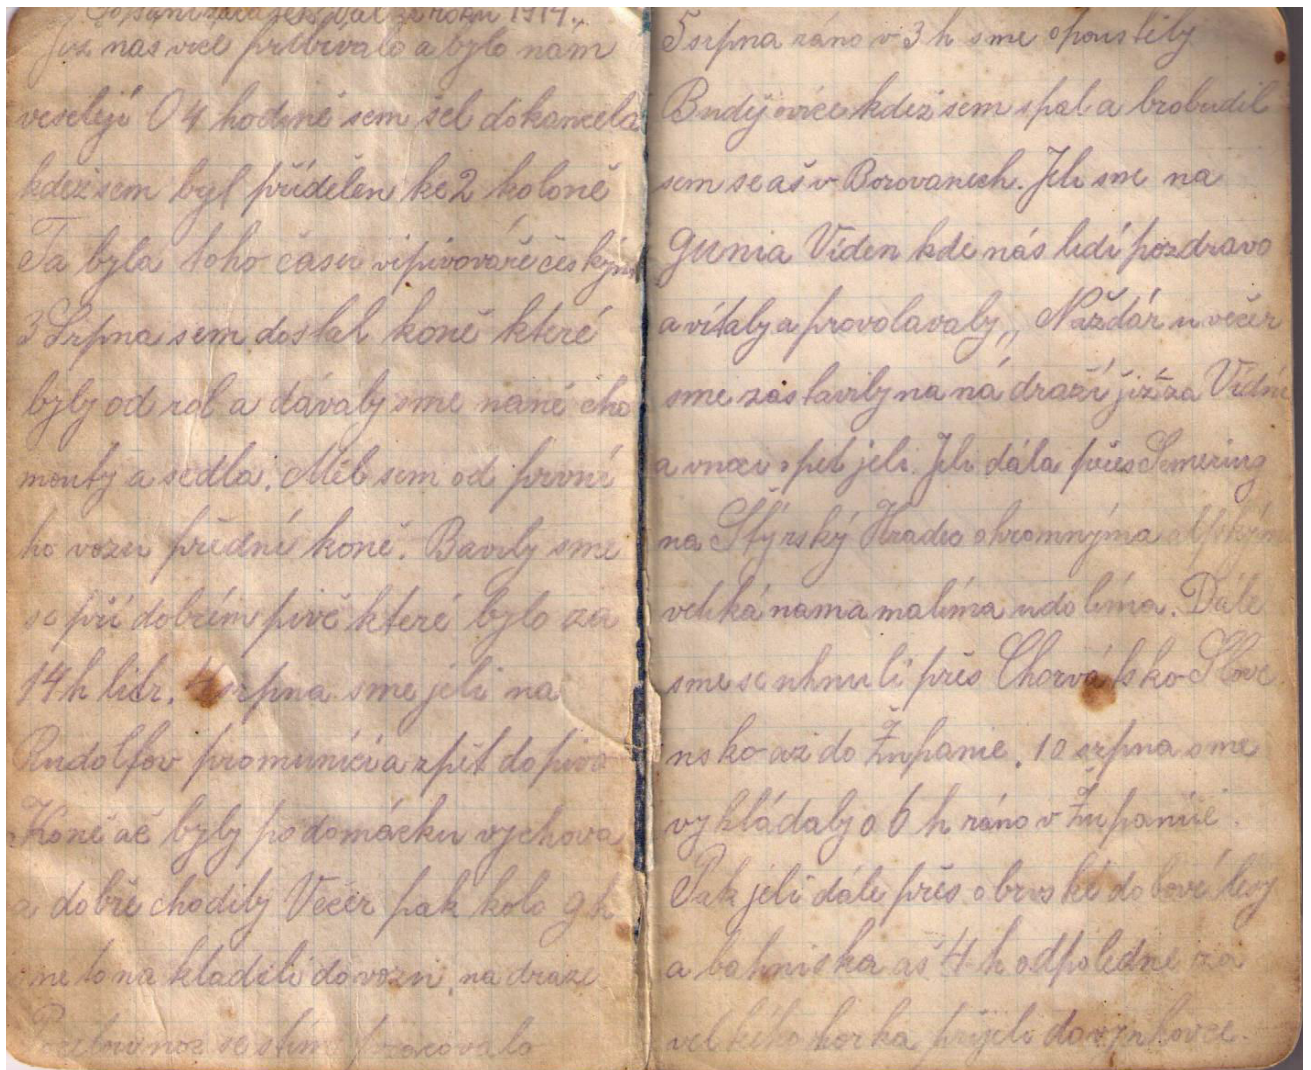 roku 1914.
Již nás více přibívalo a bylo nám
veseleji O 4 hodině sem šel do kancela
kdež sem byl přidělen ke 2 koloně
Ta byla toho času v pivováře českým
3 Srpna sem dostal koně které
byly od rol a dávaly sme nané cho
mouty a sedla. Měl sem od první
ho vozu přední koně. Bavily sme
se při dobrém pivě které bylo za
14 h litr. 4 srpna sme jeli na
Rudolfov pro munici a zpět do pivo
Koně ač byly po domácku vychova
a dobře chodily Večer pak kolo 9 h
me to na kládali do vozu na draze
se stím
5 srpna ráno v 3 h sme opoustěly
Budějovice kdež sem spal a probudil
sem se aš v Borovanech. Jeli sme na
Viden kde nás lidí pozdravo
a vítaly a provolavaly „ Nazdár u večer
sme zastavily na ná draží již za Vídní
a vnoci opět jeli. Jeli dála přes Semering
na Štýrský Hradec ohromnýma alpským
veliká nama malíma udolíma. Dále
sme se uhnuli přes Chorvátsko Slove
nsko až do Županie. 10 srpna sme
vykládaly o 6 h ráno v Županíie.
Pak jeli dále přes obrovské dobové lesy
a bahniska aš 4 h odpoledne za
velkého horka přijeli do